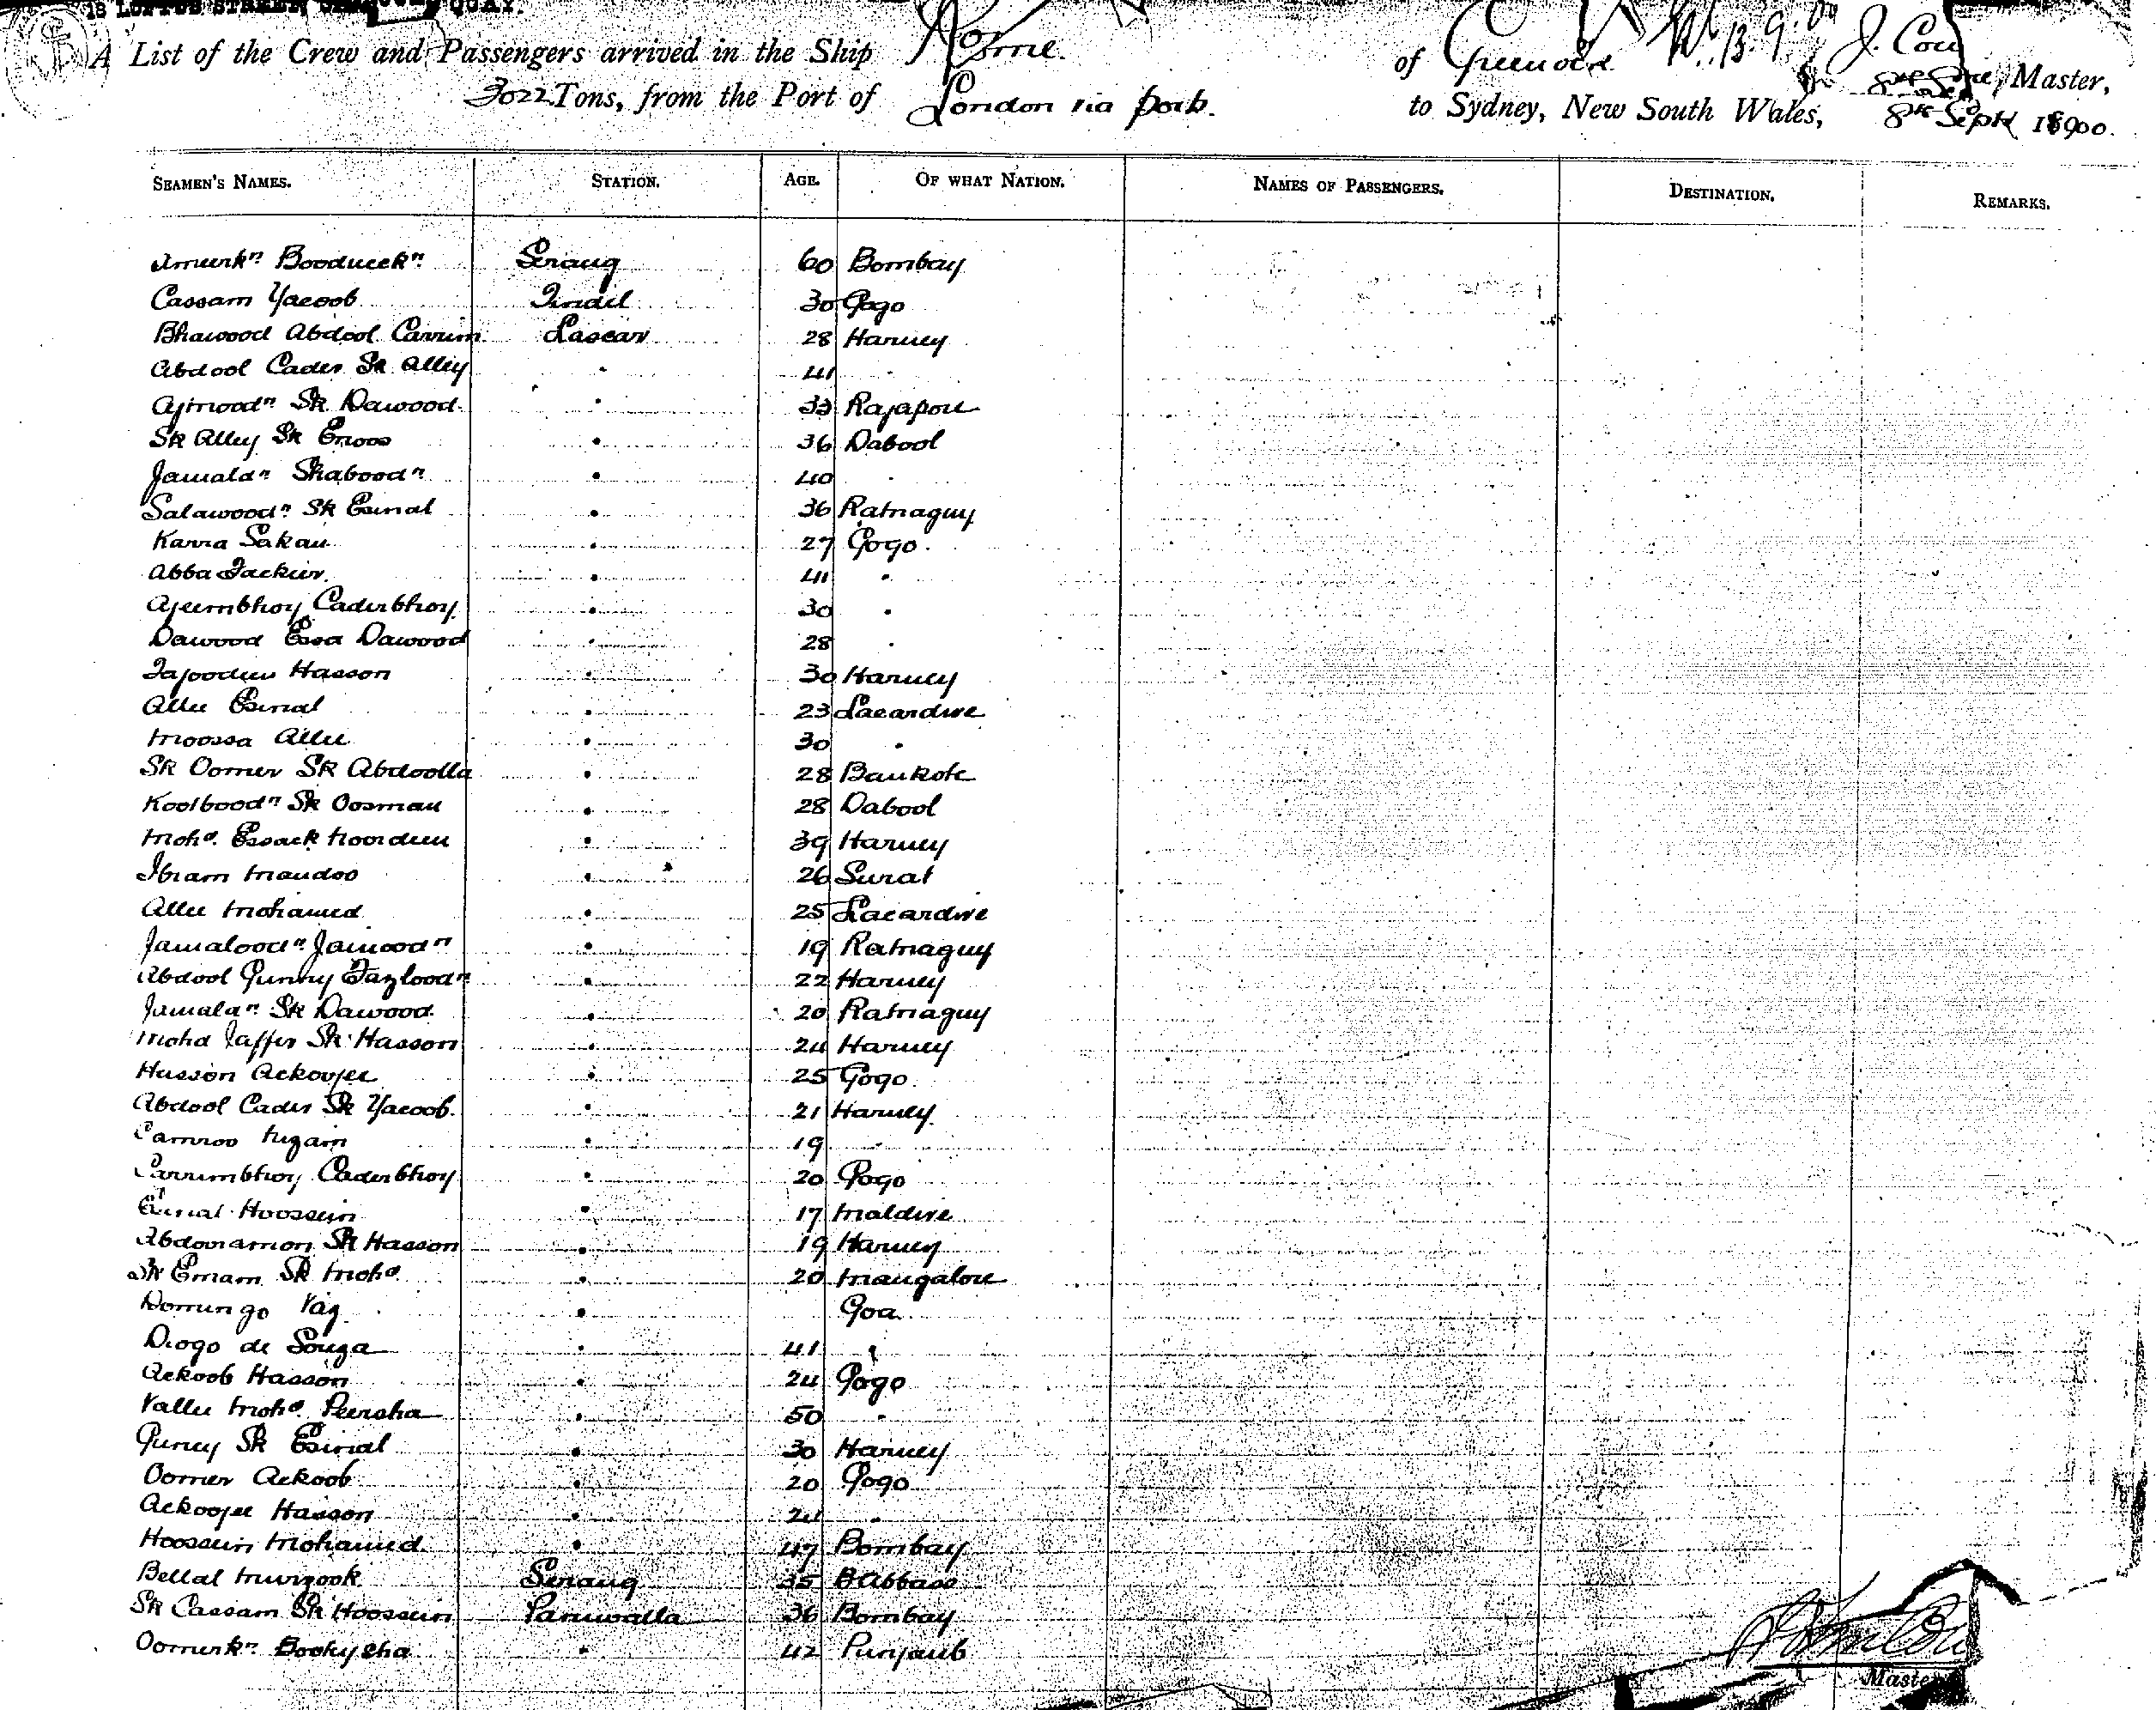 18 LOFTUS STREET, QUAY.
A List of the Crew and Passengers arrived in the Ship Rome of Greenock J. Cou Master,
3022 Tons, from the Port of London via ports to Sydney, New South Wales, 8th Sept 1900.
SEAMEN'S NAMES. STATION. AGE. OF WHAT NATION. NAMES OF PASSENGERS. DESTINATION. REMARKS.
Serang 60 Bombay
Cassam Yacoob Tindel 30 Gogo
Bhawood Abdool Carrim Lascar 28 Harney
Abdool Cader Sk Alley " 41 "
Ajmoodn Sk Dawood " 33 Rajapore
Sk Alley Sk Enoos " 36 Dabool
Jamaldn Skaboodn " 40 "
Salawoodn Sk Esmal " 36 Ratnaguy
Karra Sakau " 27 Gogo
Abba Fackier " 41 "
Ajeembhoy Caderbhoy " 30 "
Dawood Essa Dawood " 28 "
Tajoodeen Hasson " 30 Harney
Allee Esmal " 23 Lacardive
Moossa Allee " 30 "
Sk Oomer Sk Abdoolla " 28 Bankote
Koolboodn Sk Oosman " 28 Dabool
Mohd. Essack Noordeen " 39 Harney
Ibram Mandoo " 26 Surat
Allee Mohamed " 25 Lacardive
Jamaloodn Jainoodn " 19 Ratnaguy
Abdool Gunny Fazloodn " 22 Harney
Jamaldn Sk Dawood " 20 Ratnaguy
Mohd Jaffer Sk Hasson " 24 Harney
Husson Ackoojee " 25 Gogo
Abdool Cader Sk Yacoob " 21 Harney
Camroo Nizam " 19 "
Carrimbhoy Caderbhoy " 20 Gogo
Esmal Hoossein " 17 Maldive
Abdooramon Sk Hasson " 19 Harney
Sk Emam Sk Mohd. " 20 Mangalore
Domingo Vaz " Goa
Diogo de Souza " 41 "
Ackoob Hasson " 24 Gogo
Vallee Mohd. Peersha " 50 "
Guney Sk Esmal " 30 Harney
Oomer Ackoob " 20 Gogo
Ackoojee Hasson " 24 "
Hoossein Mohamed " 47 Bombay
Bellal Murzook Serang 35 BAbbass
Sk Cassam Sk Hoossein Paniwalla 36 Bombay
Oomerkn Bookysha " 42 Punjaub
Master